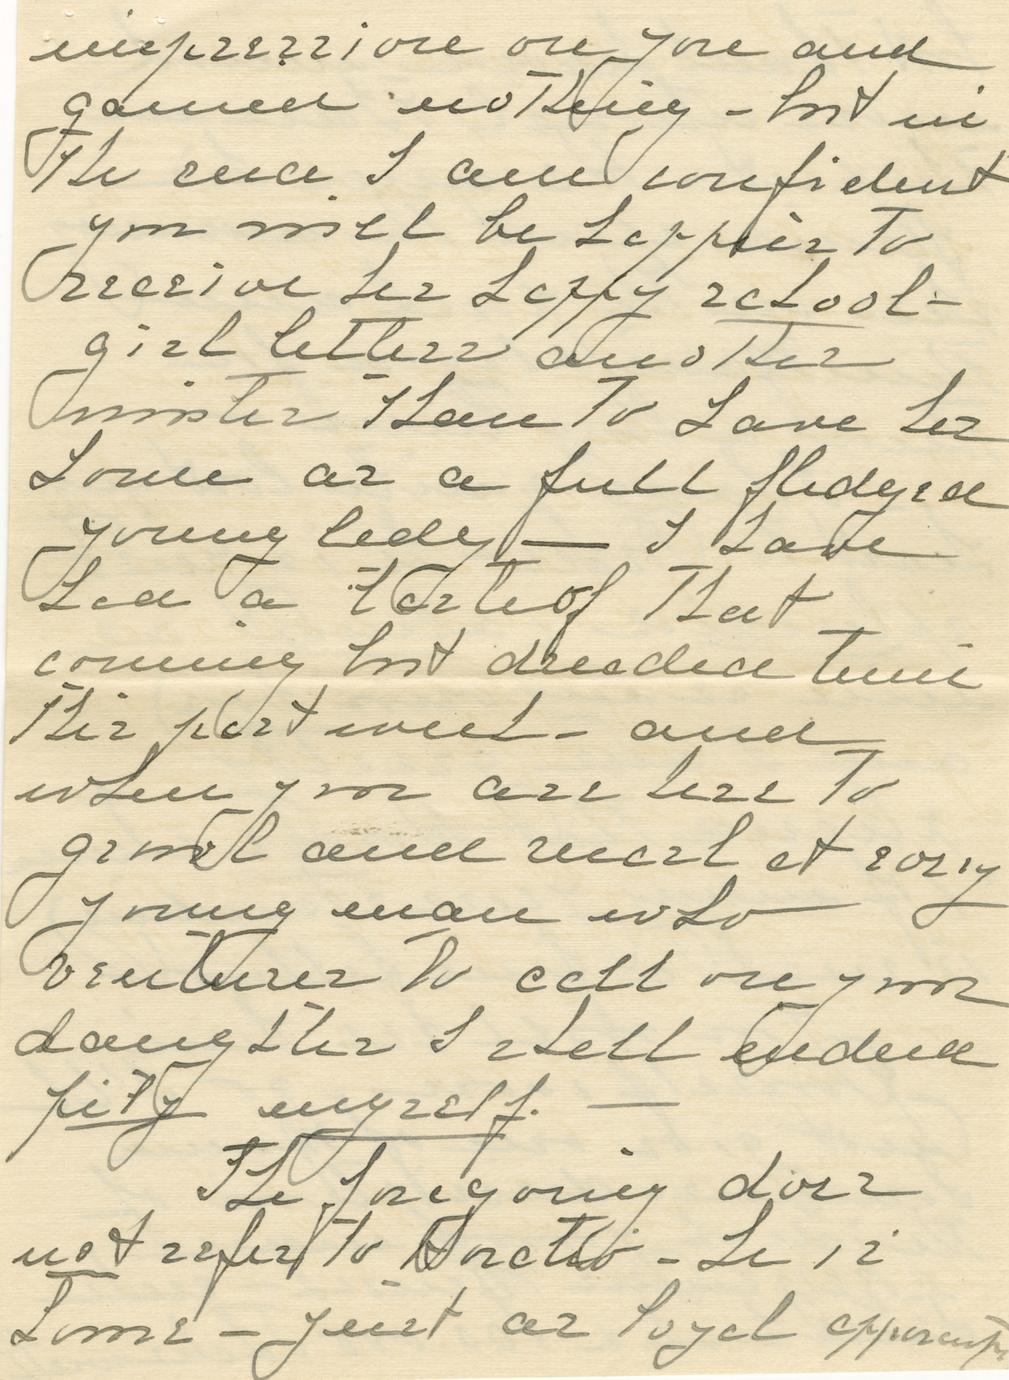 impression on you and
gained nothing - but in
the end I am confident
you will be happier to
receive her happy school-
girl letters another
winter than to have her
home as a full fledged
young lady — I have
had a taste of that
coming but dreaded time
this past week - and
when you are here to
growl and snarl at every
young man who
ventures to call on your
daughter I shall indeed
pity myself. —
The foregoing does
not refer to Horatio - he is
home - just as loyal apparently